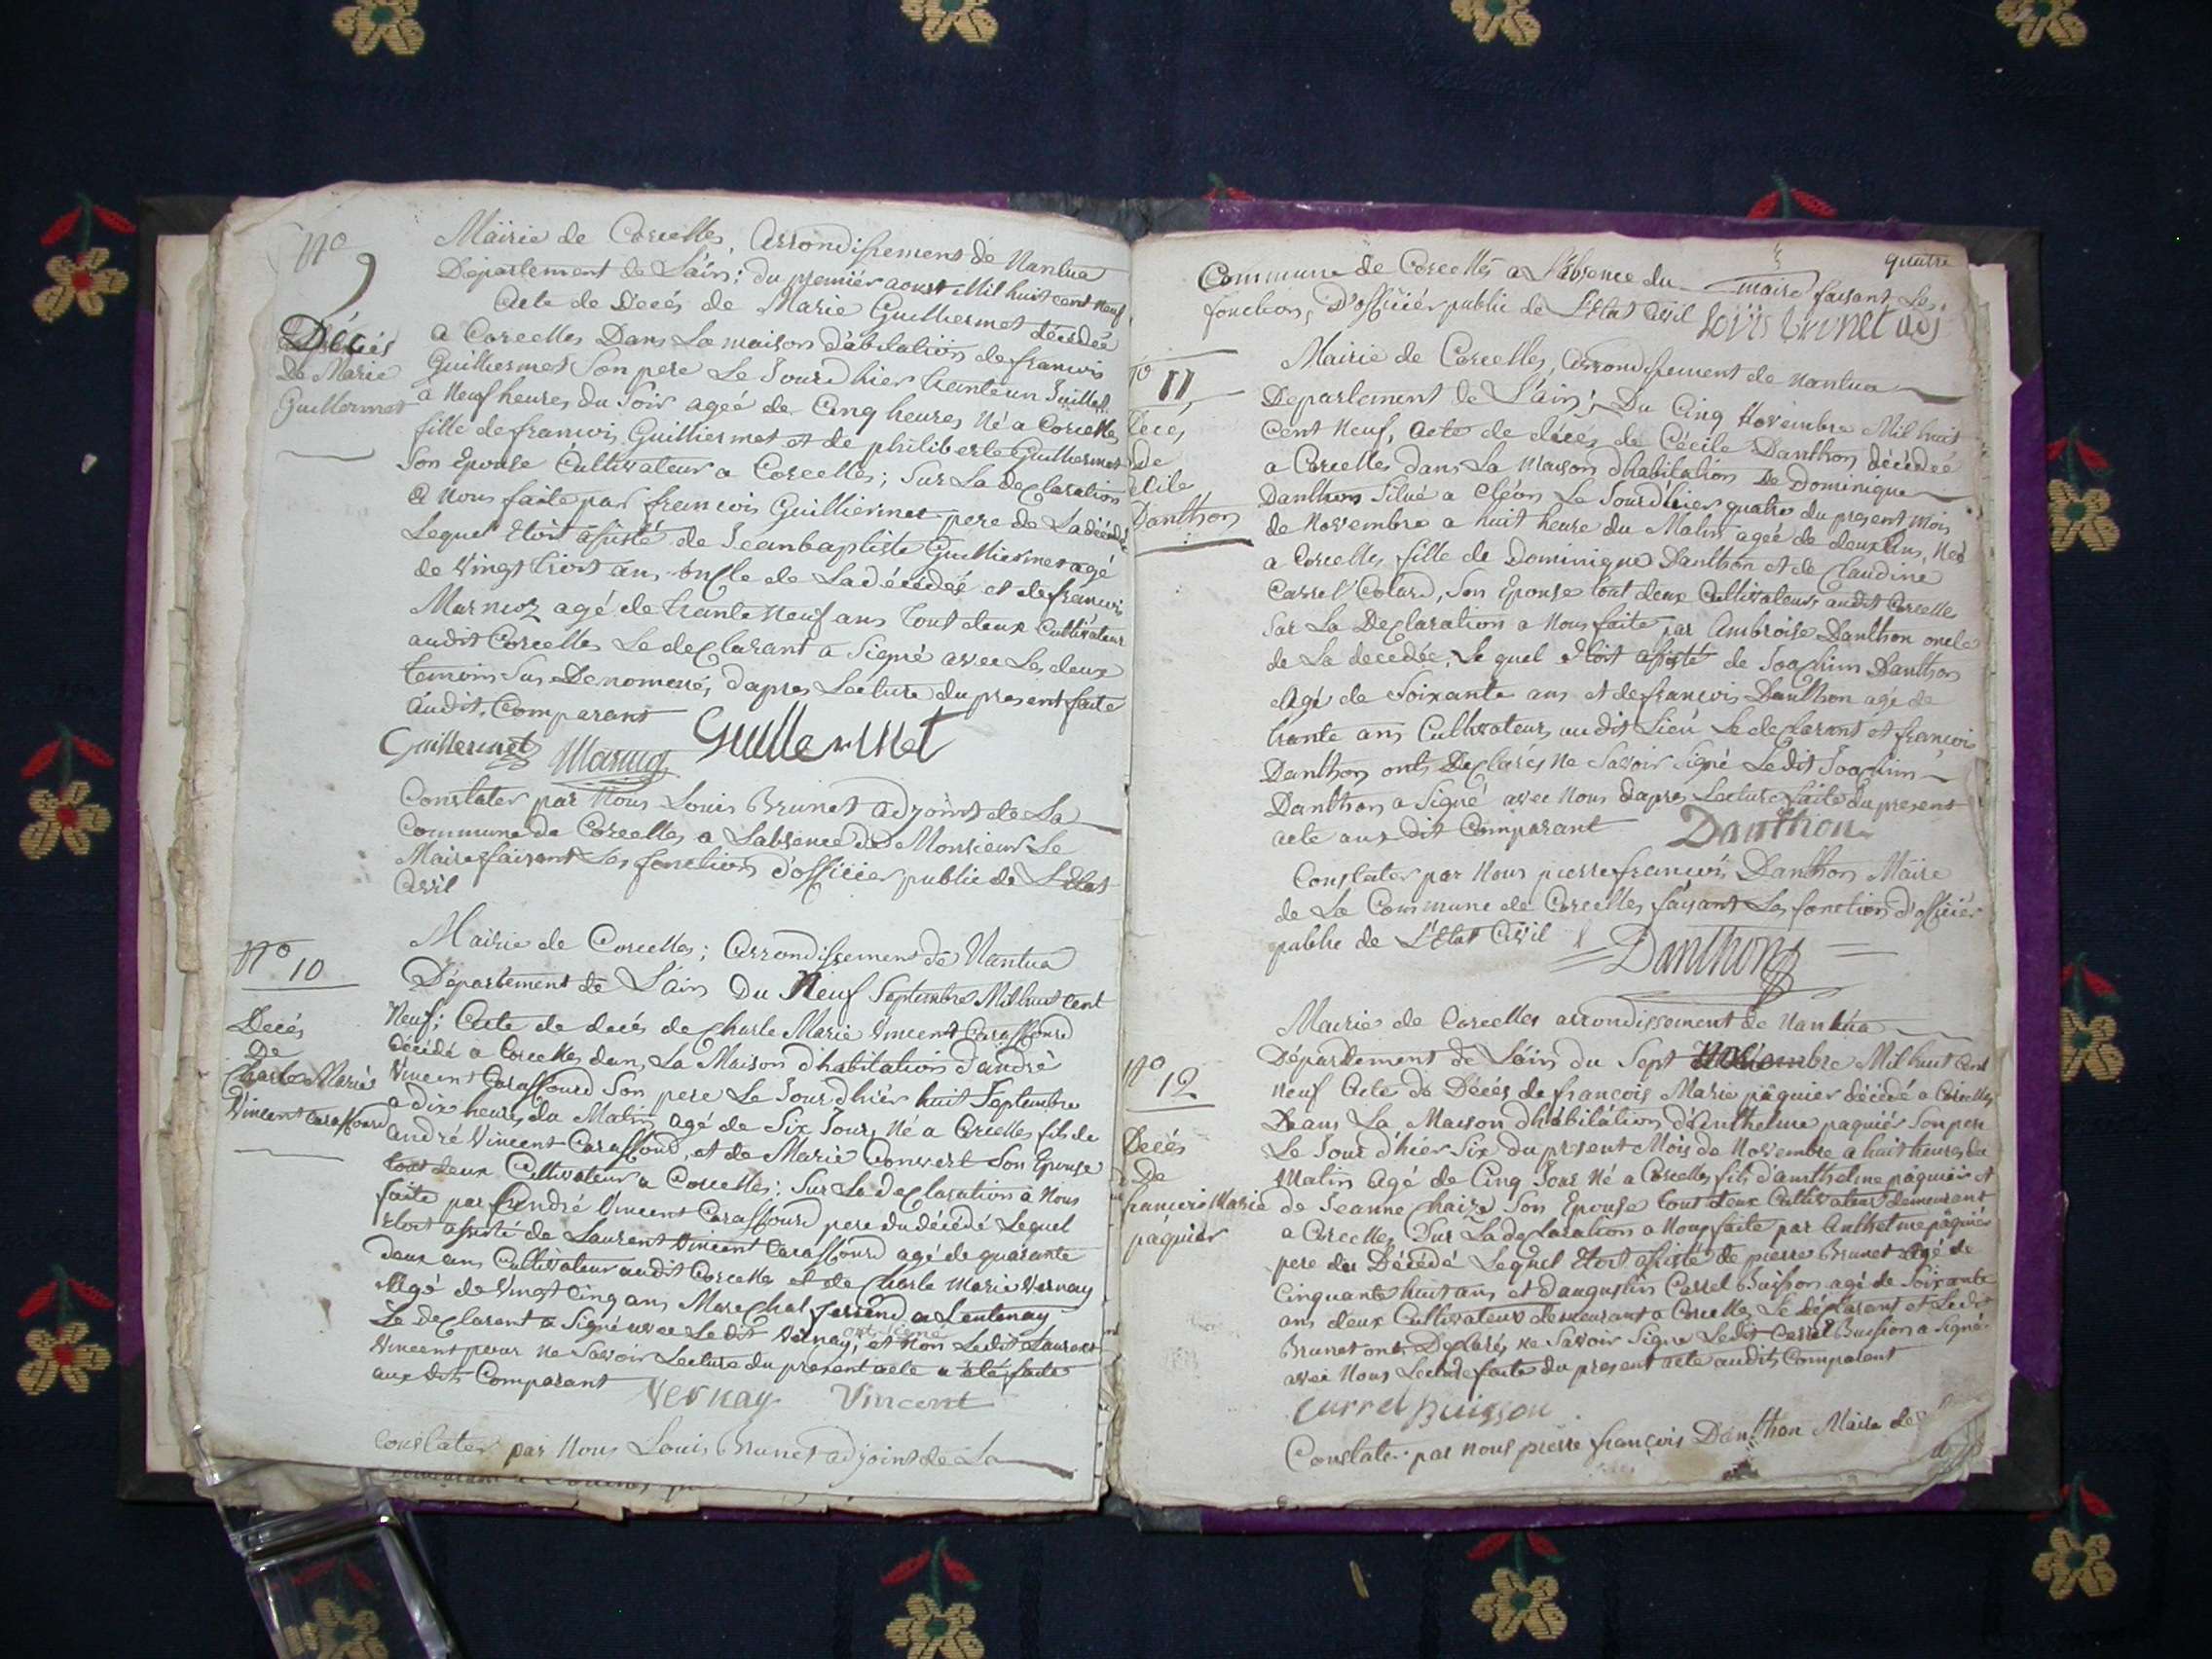 N° 9
Décés
De Marie
Guillermet
Mairie de Corcelles, Arrondissement de Nantua
Département de L'ain; du premier aoust Mil huit cent neuf
Acte de Décés de Marie Guilliermet décédée
a Corcelles Dans La maison d'abitation de francois
Guilliermet Son pere Le Jourdhier trante un Juillet
à Neuf heures du Soir ageé de Cinq heures Né a Corcelles
fille de francois Guilliermet et de philiberte Guilliermet
Son Epouse Cultivateur a Corcelles; Sur La declaration
a nous faite par francois Guilliermet pere de La décédé
Lequel Etoit assisté de Jeanbaptiste Guilliermet agé
de Vingt trois ans oncle de La décédée et de francois
Marnioz agé de trante Neuf ans tout deux Cultivateur
audit Corcelles Le declarant a Signé avec Les deux
temoins Sus Denomerés d'apres Lecture du present faite
audit Comparant
Guillermet Guillermet
Constater par Nous Louis Brunet adjoint de La
Commune de Corcelles a Labsence de Monsieur Le
Maire faisant Les fonction d'officier public de L'Etat
Civil
N° 10
Decés
De
Charle Marie
Vincent Caraffourd
Mairie de Corcelles; Arrondissement de Nantua
Département de L'ain Du Neuf Septembre Mil huit Cent
Neuf; Acte de decés de Charle Marie Vincent Caraffourd
décédé a Corcelles dans La Maison d'habitation d'andré
Vincent Caraffourd Son pere Le Jour d'hiér huit Septembre
a dix heures du Matin agé de Six Jours Né a Corcelles fils de
andré Vincent Caraffourd, et de Marie Convert Son Epouse
tout deux Cultivateur a Corcelles; Sur La declaration à Nous
faite par André Vincent Caraffourd pere du décédé Lequel
Etoit assisté de Laurent Vincent Caraffourd agé de quarante
deux ans Cultivateur audit Corcelles et de Charle Marie Vernay
Agé de Vingt Cinq ans Marechal ferrend a Lentenay
Le declarent a Signé avec Le dit Vernay, et Non Ledit Laurent
Vincent pour Ne Savoir Lecture du present acte a été faite
aux dits Comparant Vernay Vincent
Constater par Nous Louis Brunet adjoint de La
quatre
Commune de Corcelles a L'absence du maire faisant Les
fonctions D'officiér public de L'Etat Civil Loüis brunet adj
N° 11
Deces
De
Cécile
Danthon
Mairie de Corcelles, Arrondissement de Nantua
Departement de L'ain; Du Cinq Novembre Mil huit
Cent Neuf, Acte de décés de Cécile Danthon décédeé
a Corcelles dans La Maison d'habitation De Dominique
Danthon Situé a Cléon Le Jourdhier quatre du present mois
de Novembre a huit heure du Matin ageé de deux ans, Neé
a Corcelles fille de Dominique Danthon et de Claudine
Carrel Colard, Son Epouse tout deux Cultivateurs audit Corcelles
Sur La Declaration a Nous faite par Ambroise Danthon oncle
de La decedée, Le quel Etoit assisté de Joachim Danthon
Agé de Soixante ans et de francois Danthon agé de
trante ans Cultivateurs audit Lieu Le declarant et francois
Danthon ont Declarés Ne Savoir Signé Ledit Joachim
Danthon a Signé avec Nous dapres Lecture faite du present
acte aux dit Comparant Danthon
Constater par Nous pierre francois Danthon Maire
de La Commune de Corcelles faisant Les fonction d'officiér
public de L'Etat Civil Danthon
N° 12
Decés
De
francois Marie
pâquier
Mairie de Corcelles arrondissement de Nantua
Département de L'ain du Sept Novembre Mil huit Cent
Neuf Acte de Décés de françois Marie pâquier décédé a Corcelles
Dans La Maison d'habitation d'Anthelme paquiér Son pere
Le Jour d'hiér Six du present Mois de Novembre a huit heures du
Matin Agé de Cinq Jour Né a Corcelles fils d'anthelme pâquiér et
de Jeanne Chaize Son Epouse tout deux Cultivateur demeurant
a Corcelles Sur La declaration a Nous faite par Anthelme pâquiér
pere du Décédé Lequel Etoit assisté de pierre Brunet Agé de
Cinquante huit ans et d'augustin Carrel Buisson agé de Soixante
ans deux Cultivateur demeurant a Corcelles Le déclarant et Ledit
Brunet ont Declaré, Ne Savoir Signe Ledit Carrel Buission a Signé
avec Nous Lecture faite du present acte audits Comparent
Carrel Buisson
Constater par nous pierre françois Danthon Maire de